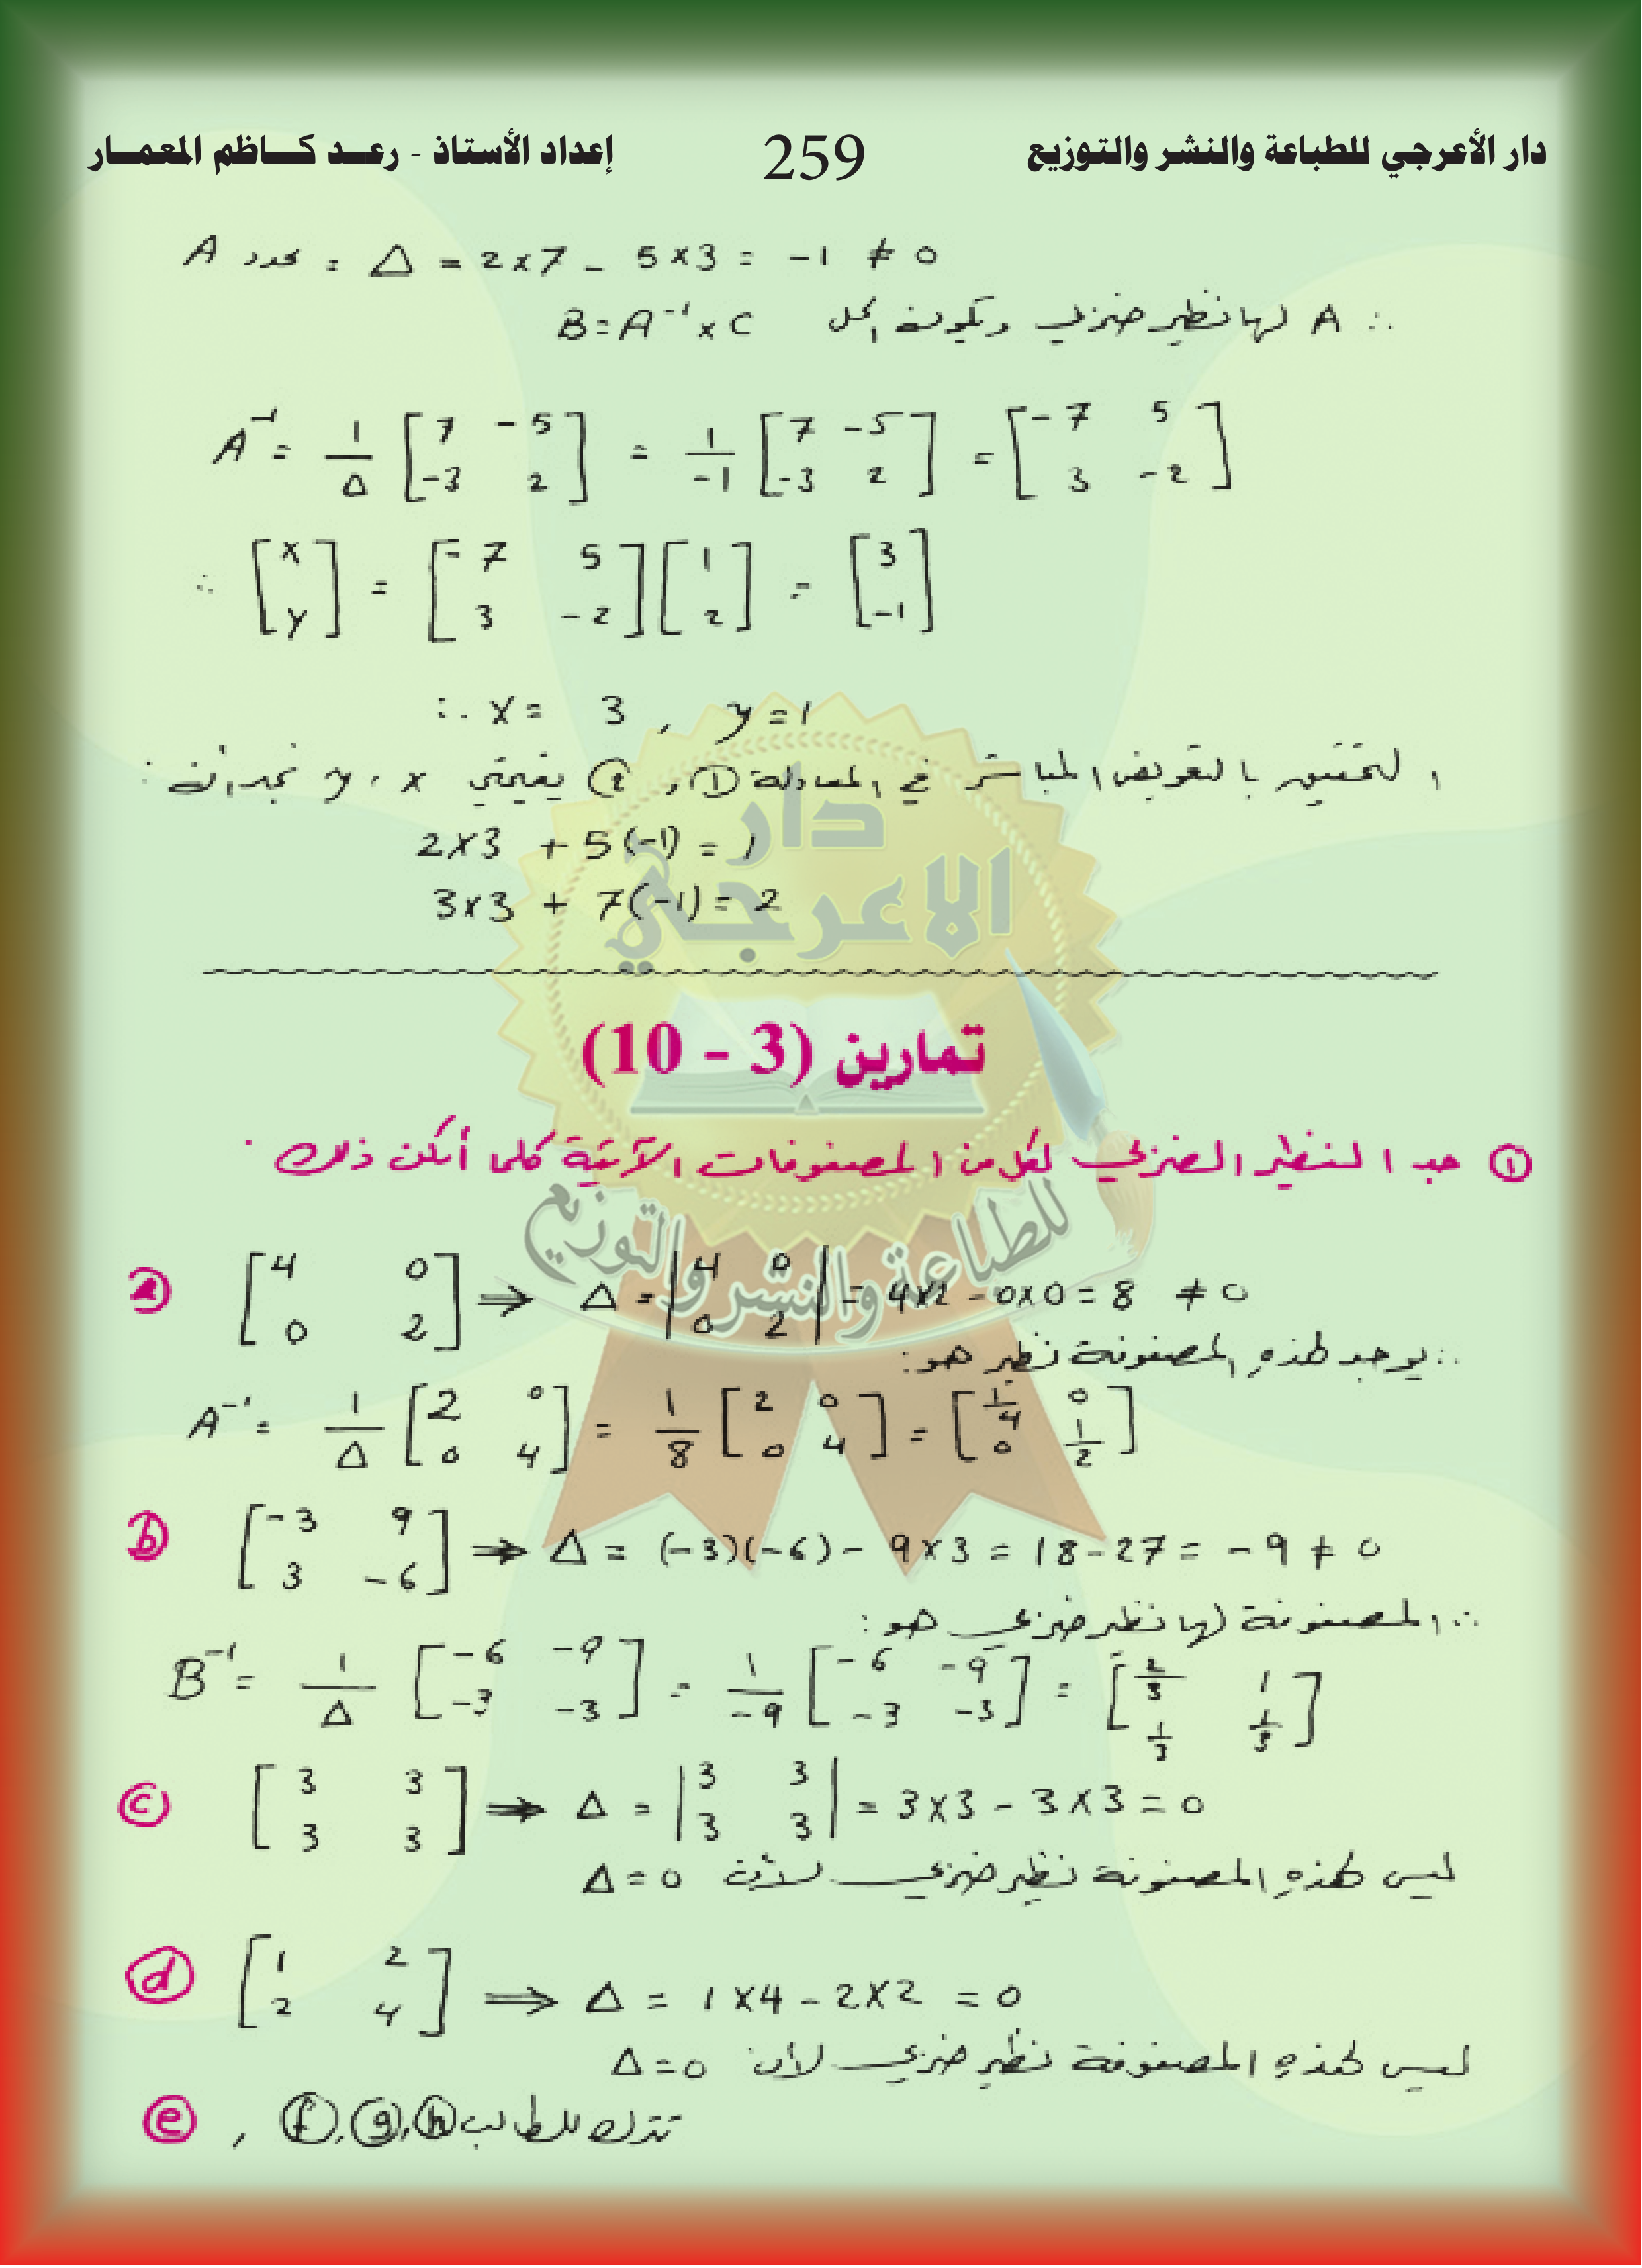 دار الأعرجي للطباعة والنشر والتوزيع 259 إعداد الأستاذ - رعــد كــاظم المعمــار
A محدد = Δ = 2×7 - 5×3 = -1 ≠ 0
∴ A لها نظير ضربي ويكون الحل B = A⁻¹ × C
A⁻¹ = 1/Δ [7 -5; -3 2] = 1/-1 [7 -5; -3 2] = [-7 5; 3 -2]
∴ [x; y] = [-7 5; 3 -2] [1; 2] = [3; -1]
∴ x = 3 , y = 1
التحقيق بالتعويض المباشر في المعادلة ①, ② بقيمتي x ، y نجد أن :
2×3 + 5(-1) = 1
3×3 + 7(-1) = 2
تمارين (3 - 10)
① جد النظير الضربي لكل من المصفوفات الآتية كلما أمكن ذلك .
ⓐ [4 0; 0 2] ⇒ Δ = |4 0; 0 2| = 4×2 - 0×0 = 8 ≠ 0
∴ يوجد لهذه المصفوفة نظير هو:
A⁻¹ = 1/Δ [2 0; 0 4] = 1/8 [2 0; 0 4] = [1/4 0; 0 1/2]
ⓑ [-3 9; 3 -6] ⇒ Δ = (-3)(-6) - 9×3 = 18-27 = -9 ≠ 0
∴ المصفوفة لها نظير ضربي هو:
B⁻¹ = 1/Δ [-6 -9; -3 -3] = 1/-9 [-6 -9; -3 -3] = [2/3 1; 1/3 1/3]
ⓒ [3 3; 3 3] ⇒ Δ = |3 3; 3 3| = 3×3 - 3×3 = 0
ليس لهذه المصفوفة نظير ضربي لأن Δ = 0
ⓓ [1 2; 2 4] ⇒ Δ = 1×4 - 2×2 = 0
ليس لهذه المصفوفة نظير ضربي لأن Δ = 0
ⓔ , ⓕ, ⓖ, ⓗ تترك للطالب
دار
الاعرجي
للطباعة والنشر والتوزيع